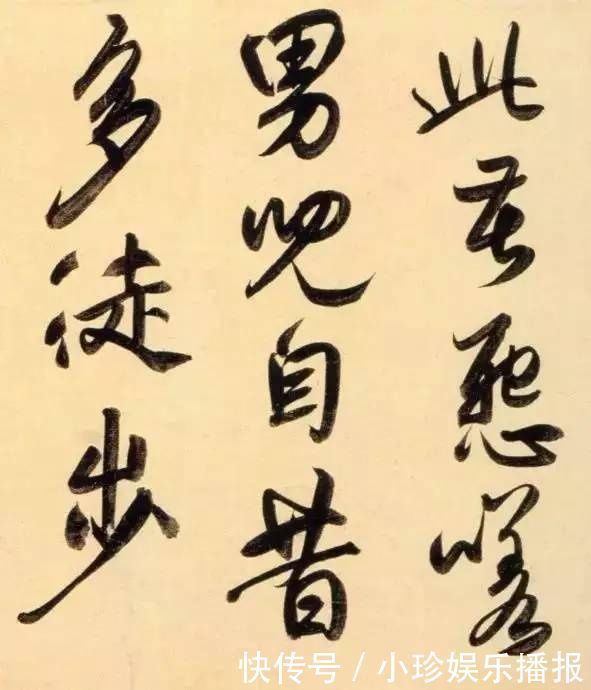 此嗟
男兒自昔
多徒步
快传号 / 小珍娱乐播报